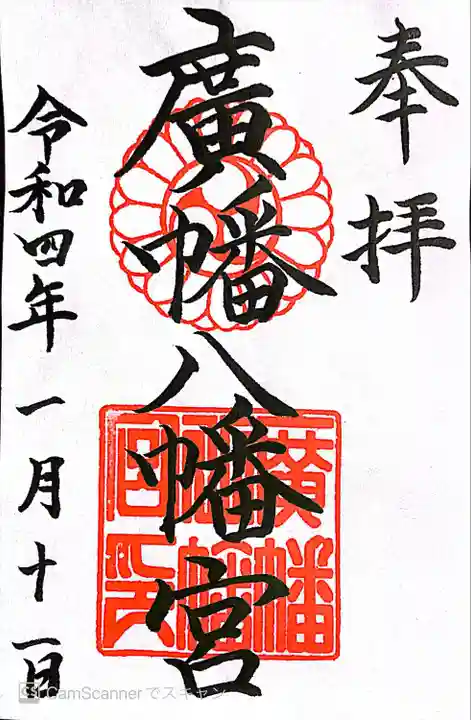 奉拝
廣幡八幡宮
令和四年一月十一日
廣幡
八幡
宮印
CS CamScannerでスキャン